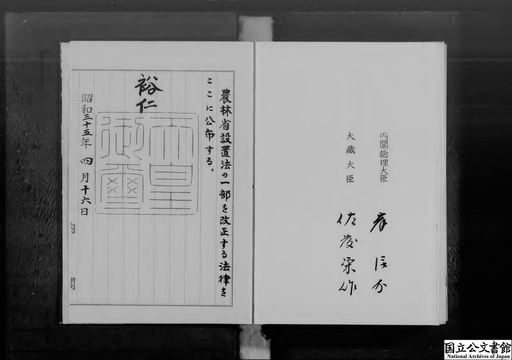 内閣総理大臣 岸信介
大蔵大臣 佐藤栄作
農林省設置法の一部を改正する法律を
ここに公布する。
裕仁
天皇
御璽
昭和三十五年四月十六日
国立公文書館
National Archives of Japan